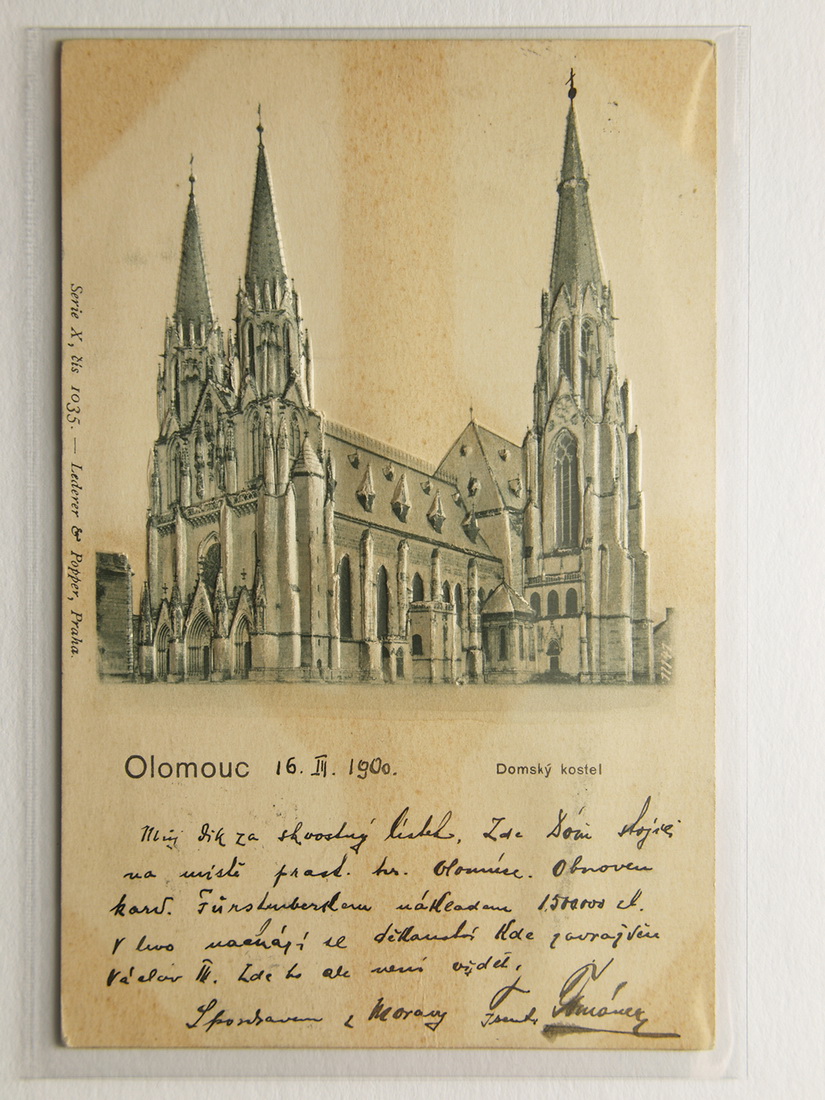 Serie X, čís 1035. — Lederer & Popper, Praha.
Olomouc 16. III. 1900. Domský kostel
Můj dík za skvostný lístek, Zde Dóm stojící
na místě prast. hr. Olomúce. Obnoven
kard. Fürstenberkem nákladem 1500000 zl.
V levo nachází se děkanství kde zavražděn
Václav III. Zde to ale není vidět,
S pozdravem z Moravy